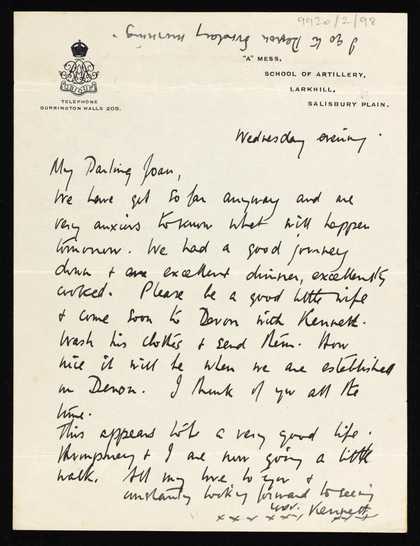 9920/2/98
I go to Devon Friday morning.
"A" MESS,
SCHOOL OF ARTILLERY,
LARKHILL,
SALISBURY PLAIN.
TELEPHONE
DURRINGTON WALLS 205.
Wednesday evening.
My Darling Joan,
We have got so far anyway and are
very anxious to know what will happen
tomorrow. We had a good journey
down & an excellent dinner, excellently
cooked. Please be a good little wife
& come soon to Devon with Kenneth.
Wash his clothes & send them. How
nice it will be when we are established
in Devon. I think of you all the
time.
This appears to be a very good life.
Humphrey & I are now going a little
walk. All my love to you &
constantly looking forward to seeing
you. Kenneth
x x x x x x x x x